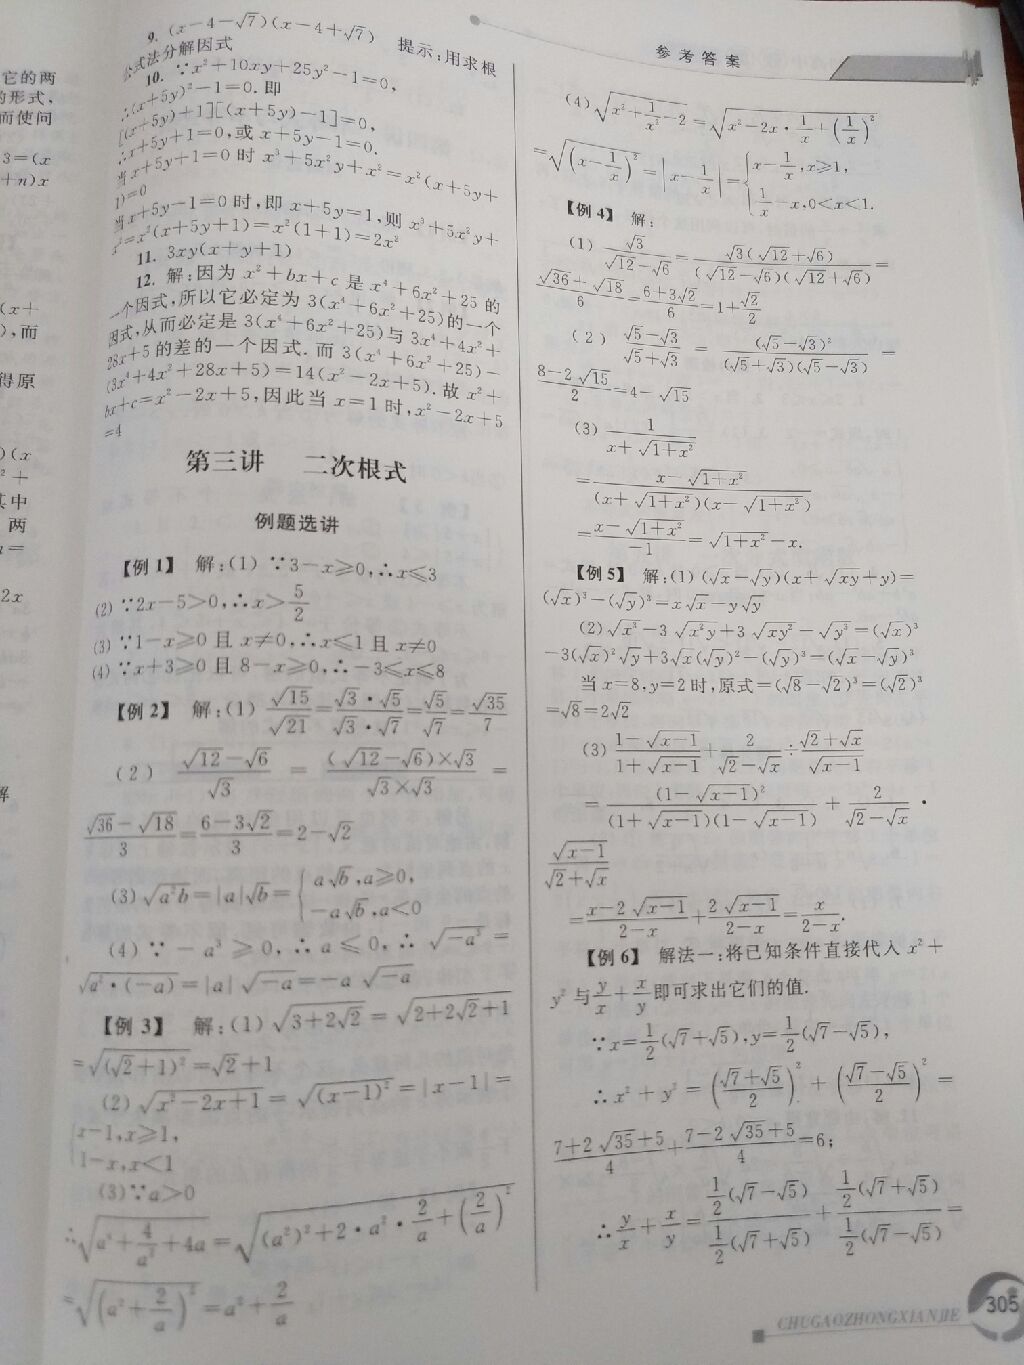 它的两
的形式,
而使问
3=(x
+n)x
(x+
),而
得原
)(x
²+
其中
两
a=
2x
解
9. (x-4-√7)(x-4+√7) 提示:用求根
公式法分解因式
10. ∵x²+10xy+25y²-1=0,
∴(x+5y)²-1=0.即
[(x+5y)+1][(x+5y)-1]=0,
∴x+5y+1=0,或x+5y-1=0.
当x+5y+1=0时 x³+5x²y+x²=x²(x+5y+
1)=0
当x+5y-1=0时,即x+5y=1,则x³+5x²y+
x²=x²(x+5y+1)=x²(1+1)=2x²
11. 3xy(x+y+1)
12. 解:因为 x²+bx+c 是 x⁴+6x²+25 的
一个因式,所以它必定为 3(x⁴+6x²+25)的一个
因式,从而必定是 3(x⁴+6x²+25)与 3x⁴+4x²+
28x+5 的差的一个因式. 而 3(x⁴+6x²+25)-
(3x⁴+4x²+28x+5)=14(x²-2x+5). 故 x²+
bx+c=x²-2x+5,因此当 x=1 时,x²-2x+5
=4
第三讲 二次根式
例题选讲
【例1】 解:(1) ∵3-x≥0,∴x≤3
(2) ∵2x-5>0,∴x>5/2
(3) ∵1-x≥0 且 x≠0,∴x≤1 且 x≠0
(4) ∵x+3≥0 且 8-x≥0,∴-3≤x≤8
【例2】 解:(1) √15/√21=(√3·√5)/(√3·√7)=√5/√7=√35/7
(2) (√12-√6)/√3 = ((√12-√6)×√3)/(√3×√3) =
(√36-√18)/3=(6-3√2)/3=2-√2
(3) √(a²b)=|a|√b={a√b,a≥0,
-a√b,a<0
(4) ∵ -a³ ≥ 0, ∴ a ≤ 0, ∴ √(-a³) =
√(a²·(-a))=|a|√(-a)=-a√(-a)
【例3】 解:(1) √(3+2√2) = √(2+2√2+1)
=√((√2+1)²)=√2+1
(2) √(x²-2x+1) = √((x-1)²) = |x-1| =
{x-1,x≥1,
1-x,x<1
(3)∵a>0
∴√(a⁴+4/a²+4a)=√((a²)²+2·a²·2/a+(2/a)²)
=√((a²+2/a)²)=a²+2/a
参考答案
(4) √(x²+1/x²-2)=√(x²-2x·1/x+(1/x)²)
=√((x-1/x)²)=|x-1/x|={x-1/x,x≥1,
1/x-x,0<x<1.
【例4】 解:
(1) √3/(√12-√6)=(√3(√12+√6))/((√12-√6)(√12+√6))=
(√36+√18)/6=(6+3√2)/6=1+√2/2
(2) (√5-√3)/(√5+√3) = (√5-√3)²/((√5+√3)(√5-√3)) =
(8-2√15)/2=4-√15
(3) 1/(x+√(1+x²))
=(x-√(1+x²))/((x+√(1+x²))(x-√(1+x²)))
=(x-√(1+x²))/(-1)=√(1+x²)-x.
【例5】 解:(1) (√x-√y)(x+√(xy)+y)=
(√x)³-(√y)³=x√x-y√y
(2) √(x³)-3√(x²y)+3√(xy²)-√(y³)=(√x)³
-3(√x)²√y+3√x(√y)²-(√y)³=(√x-√y)³
当 x=8,y=2 时,原式=(√8-√2)³=(√2)³
=√8=2√2
(3) (1-√(x-1))/(1+√(x-1))+2/(√2-√x)÷(√2+√x)/√(x-1)
=(1-√(x-1))²/((1+√(x-1))(1-√(x-1))) + 2/(√2-√x) ·
√(x-1)/(√2+√x)
=(x-2√(x-1))/(2-x)+(2√(x-1))/(2-x)=x/(2-x).
【例6】 解法一:将已知条件直接代入 x²+
y² 与 y/x+x/y 即可求出它们的值.
∵x=1/2(√7+√5),y=1/2(√7-√5),
∴x²+y²=((√7+√5)/2)²+((√7-√5)/2)²=
(7+2√35+5)/4+(7-2√35+5)/4=6;
∴y/x+x/y=(1/2(√7-√5))/(1/2(√7+√5))+(1/2(√7+√5))/(1/2(√7-√5))=
CHUGAOZHONGXIANJIE
305